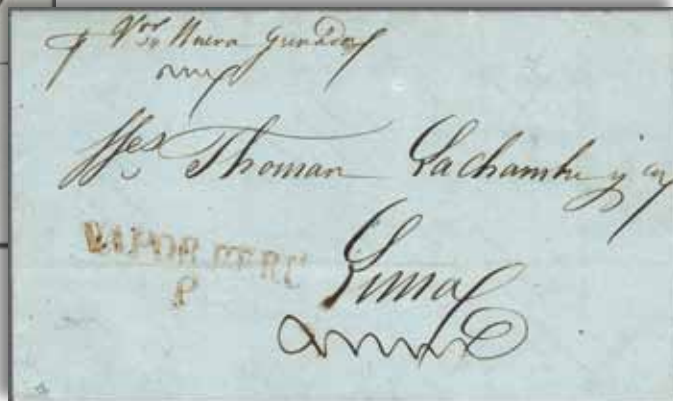 p Vor Nueva Granada
Sres Thomas Lachambre y Ca
VAPOR PERU
P
Lima